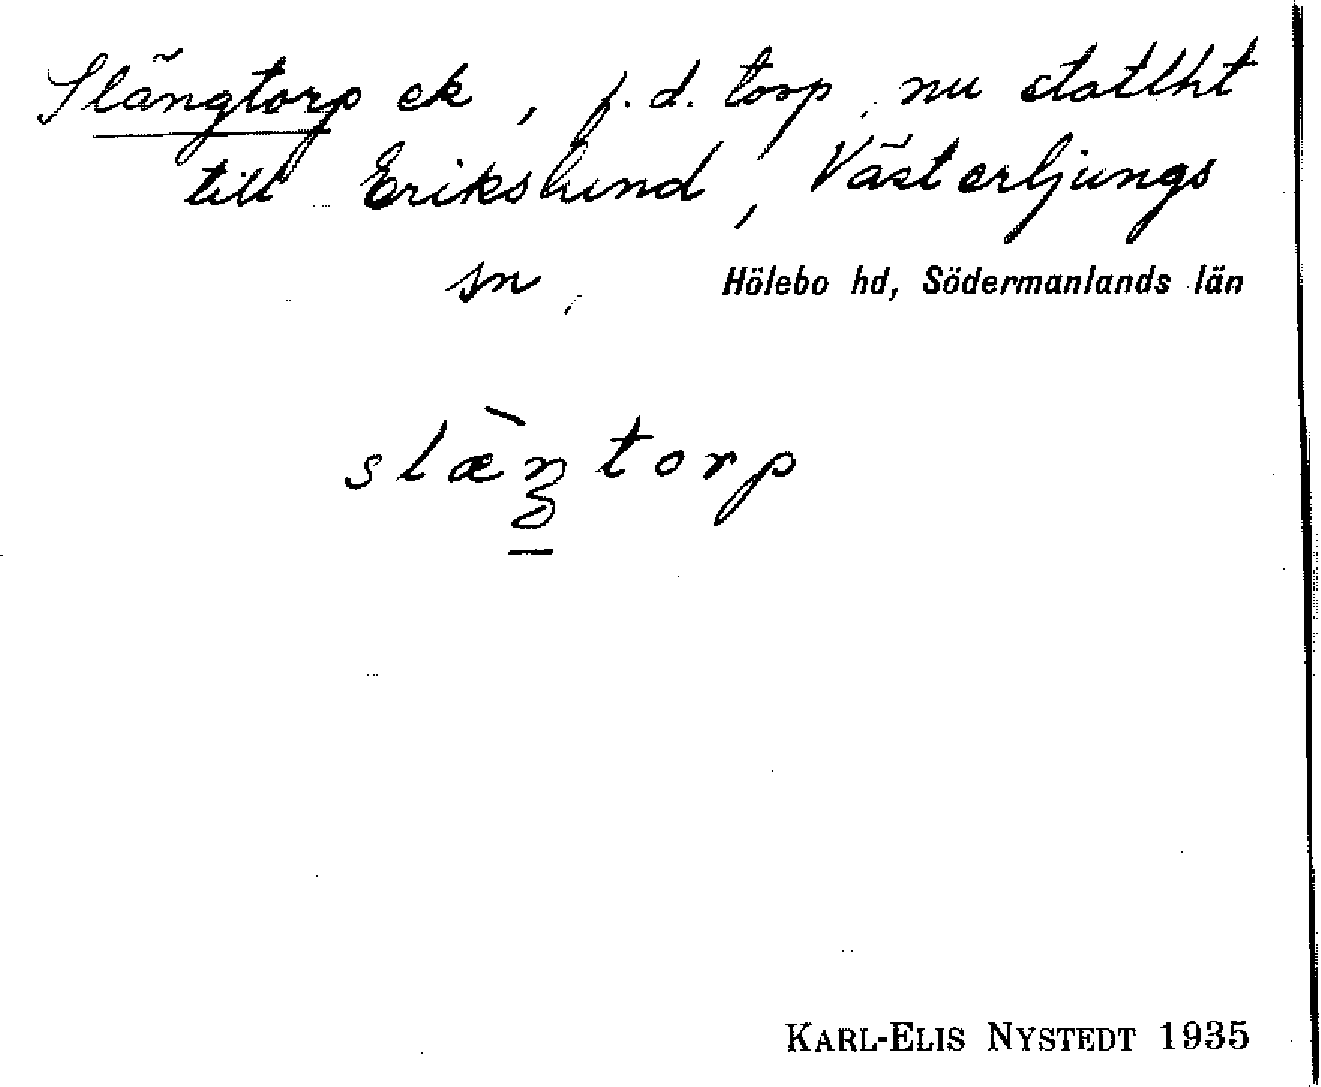 Slängtorp ek, f.d. torp, nu statlht
till Erikslund, Västerljungs
sn, Hölebo hd, Södermanlands län
slæ̀ŋtorp
KARL-ELIS NYSTEDT 1935